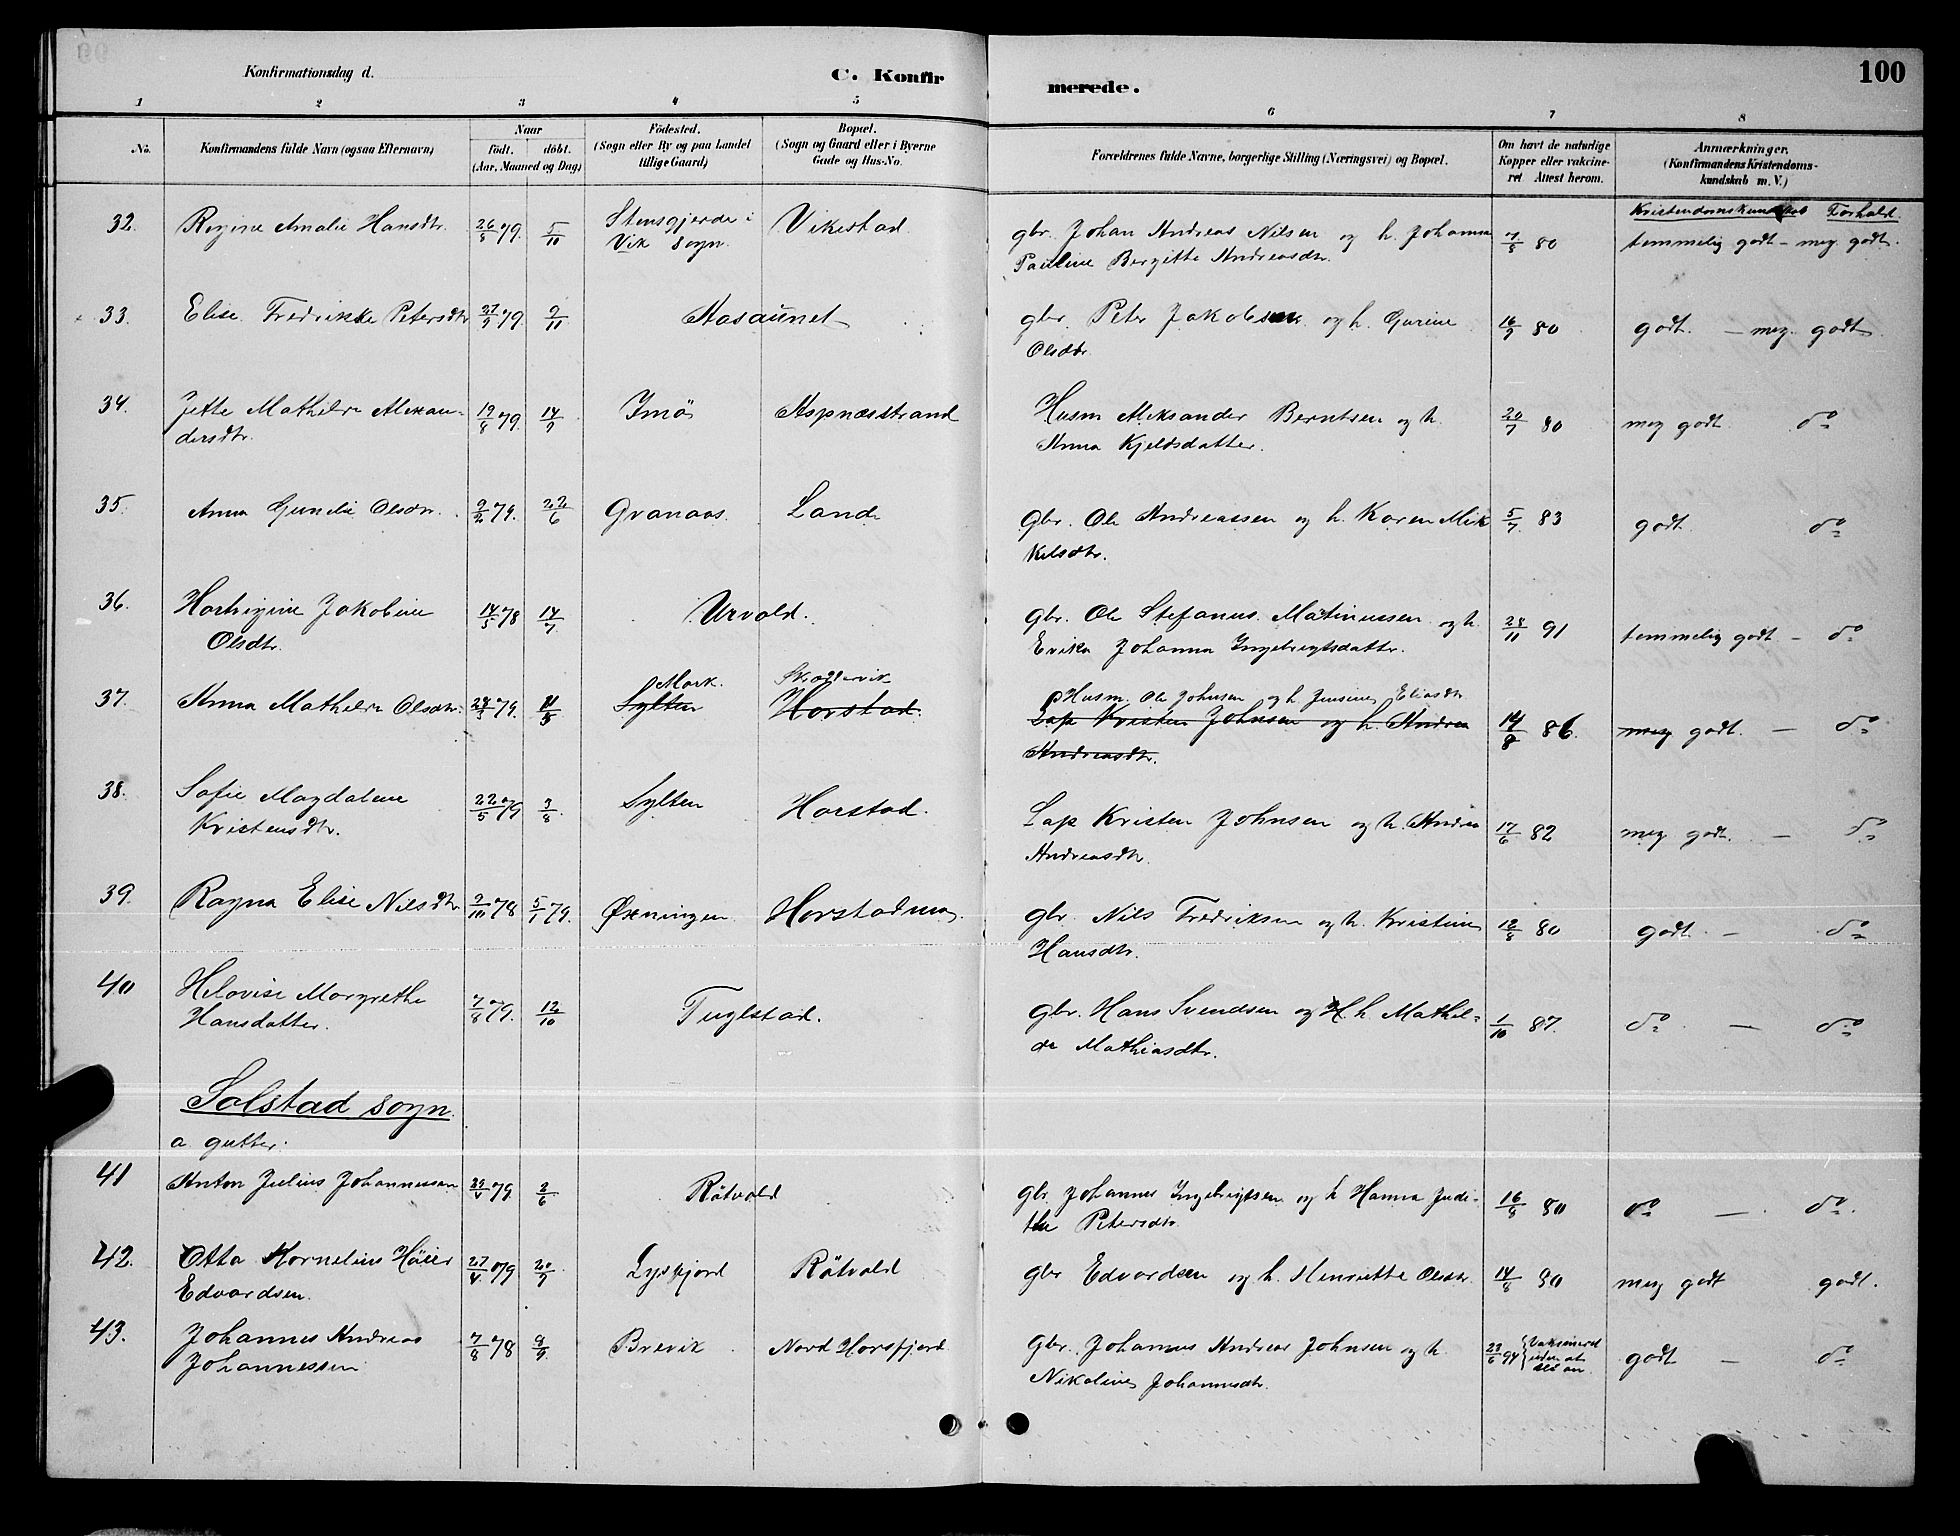 100
Konfirmationsdag d.
C. Konfir
merede.
1 2 3 4 5 6 7 8
No.
Konfirmandens fulde Navn (ogsaa Efternavn)
Naar
födt. döbt.
(Aar, Maaned og Dag)
Födested.
(Sogn eller By og paa Landet
tillige Gaard)
Bopæl.
(Sogn og Gaard eller i Byerne
Gade og Hus-No.
Forældrenes fulde Navne, borgerlige Stilling (Næringsvei) og Bopæl.
Om havt de naturlige
Kopper eller vakcine-
ret Attest herom.
Anmærkninger.
(Konfirmandens Kristendoms-
kundskab m. V.)
Kristendomskundskab Forhold.
32. Regine Amalie Hansdtr. 26/8 79. 5/10 Stensgjerde i Vikestad
Vik sogn.
gbr. Johan Andreas Nilsen og h. Johanna 7/8 80 temmelig godt – meg. godt.
Pauline Bergitte Andreasdtr.
33. Elise Fredrikke Petersdtr 27/9 79. 2/11 Aasaunet
gbr. Peter Jakobsen og h. Gurine 16/9 80 godt. – meg. godt
Olsdtr.
34. Jette Mathilde Alexan- 19/8 79. 14/9 Imö Aspnæsstrand
dersdtr.
Husm Aleksander Berntsen og h. 20/7 80 meg godt do
Anna Kjeldsdatter.
35. Anna Gunelie Olsdtr. 2/2 79. 22/6 Granaas. Lande
gbr. Ole Andreassen og h. Karen Mik 5/7 83 godt. do
kelsdtr.
36. Hartvigine Jakobine 14/5 78 14/7 Urvold.
Olsdtr.
gbr. Ole Stefanus Matinussen og h. 28/11 91 temmelig godt – do
Erika Johanna Ingebrigtsdatter.
Mark.
37. Anna Mathilde Olsdtr. 79. Sylten Horstad.
Husm. Ole Johnsen og h Jensine Eliasdtr
Lap Kristen Johnsen og h. Andrea 14/8 86. meg godt. – do
Andreasdtr.
38. Sofie Magdalene 22/5 79 3/8 Sylten Horstad.
Kristensdtr.
Lap Kristen Johnsen og h. Andrea 17/6 82 meg godt. – do
Andreasdtr.
39. Ragna Elise Nilsdtr 2/10 78 5/1 79. Øxningen Horstad
gbr. Nils Fredriksen og h. Kristine 80 godt. – do
Hansdtr.
40 Helovise Margrethe 7/8 79. 12/10 Fuglstad.
Hansdatter.
gbr. Hans Svendsen og h. Mathil- 1/10 87. do – do
de Mathiasdtr.
Solstad sogn.
a gutter.
41 Anton Julius Johannessen 79. 2/6 Rötvold
gbr. Johannes Ingebrigtsen og h Hanna Judi- 16/8 80 do – do.
the Petersdtr.
42. Otto Kornelius Höier 27/4 79 20/9 Lysfjord Rötvold
Edvardsen.
gbr Edvardsen og h. Henriette Olsdtr. 14/8 90 meg godt godt.
43. Johannes Andreas 7/8 78 9/9 Brevik Nord Horsfjord
Johannessen
gbr. Johannes Andreas Johnsen og h. 23/6 94 Vaksineret godt – do
uden at
slå an.
Nikoline Johannesdtr.